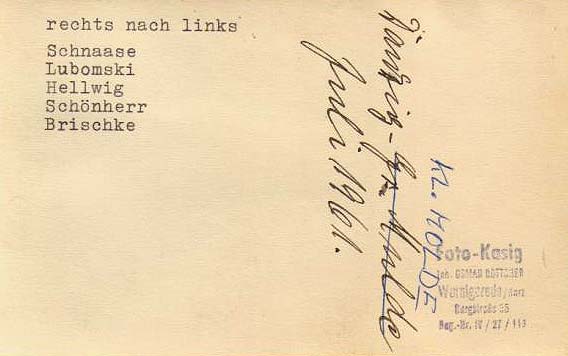 rechts nach links
Schnaase
Lubomski
Hellwig
Schönherr
Brischke
Danzig - Gr. Mulde
Juli 1961.
KL. MOLDE
Foto-Kasig
Inh. OSMAR BÖTTCHER
Wernigerode/Harz
Burgstraße
Reg.-Nr. IV / 27 / 113